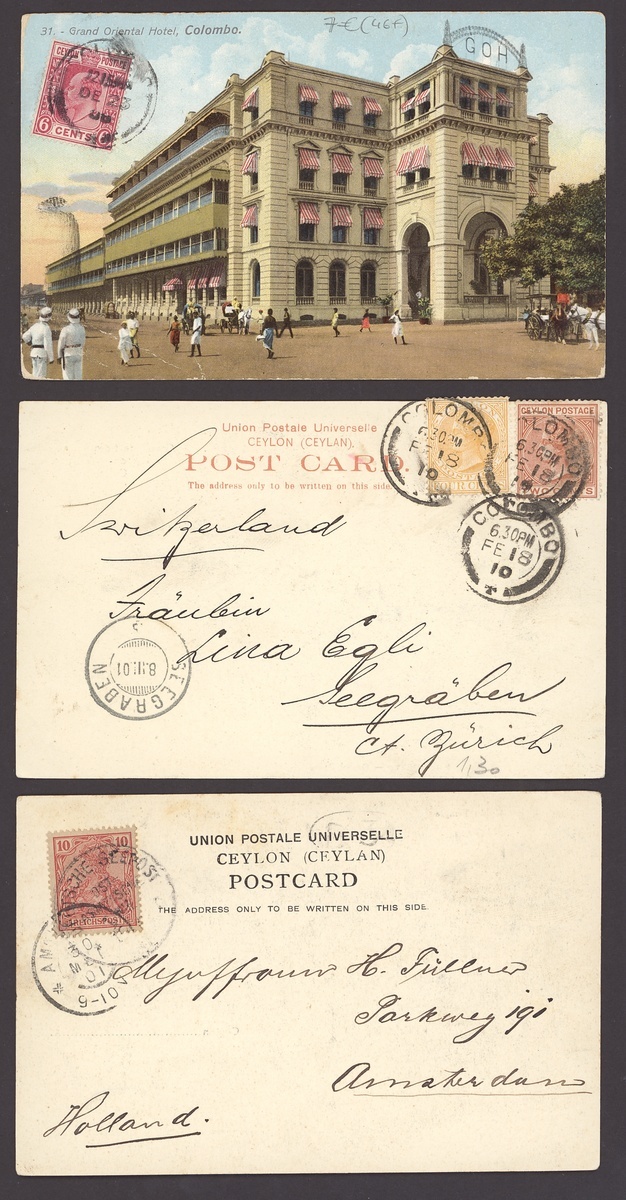 31. - Grand Oriental Hotel, Colombo.
7€ (46f)
GOH
CEYLON POSTAGE
DE 23
6 CENTS
Union Postale Universelle
CEYLON (CEYLAN).
POST CARD.
The address only to be written on this side.
COLOMBO
6.30PM
FE 18
10
CEYLON POSTAGE
COLOMBO
6.30PM
FE 18
COLOMBO
6.30PM
FE 18
10
Switzerland
Fräulein
Lina Egli
Seegräben
Ct. Zürich
SEEGRÄBEN
8.III.01
1,30
UNION POSTALE UNIVERSELLE
CEYLON (CEYLAN)
POSTCARD
THE ADDRESS ONLY TO BE WRITTEN ON THIS SIDE.
10 10
REICHSPOST
DEUTSCHE SEEPOST
Mejuffrouw H. Füllner
Parkweg 191
Amsterdam
Holland.